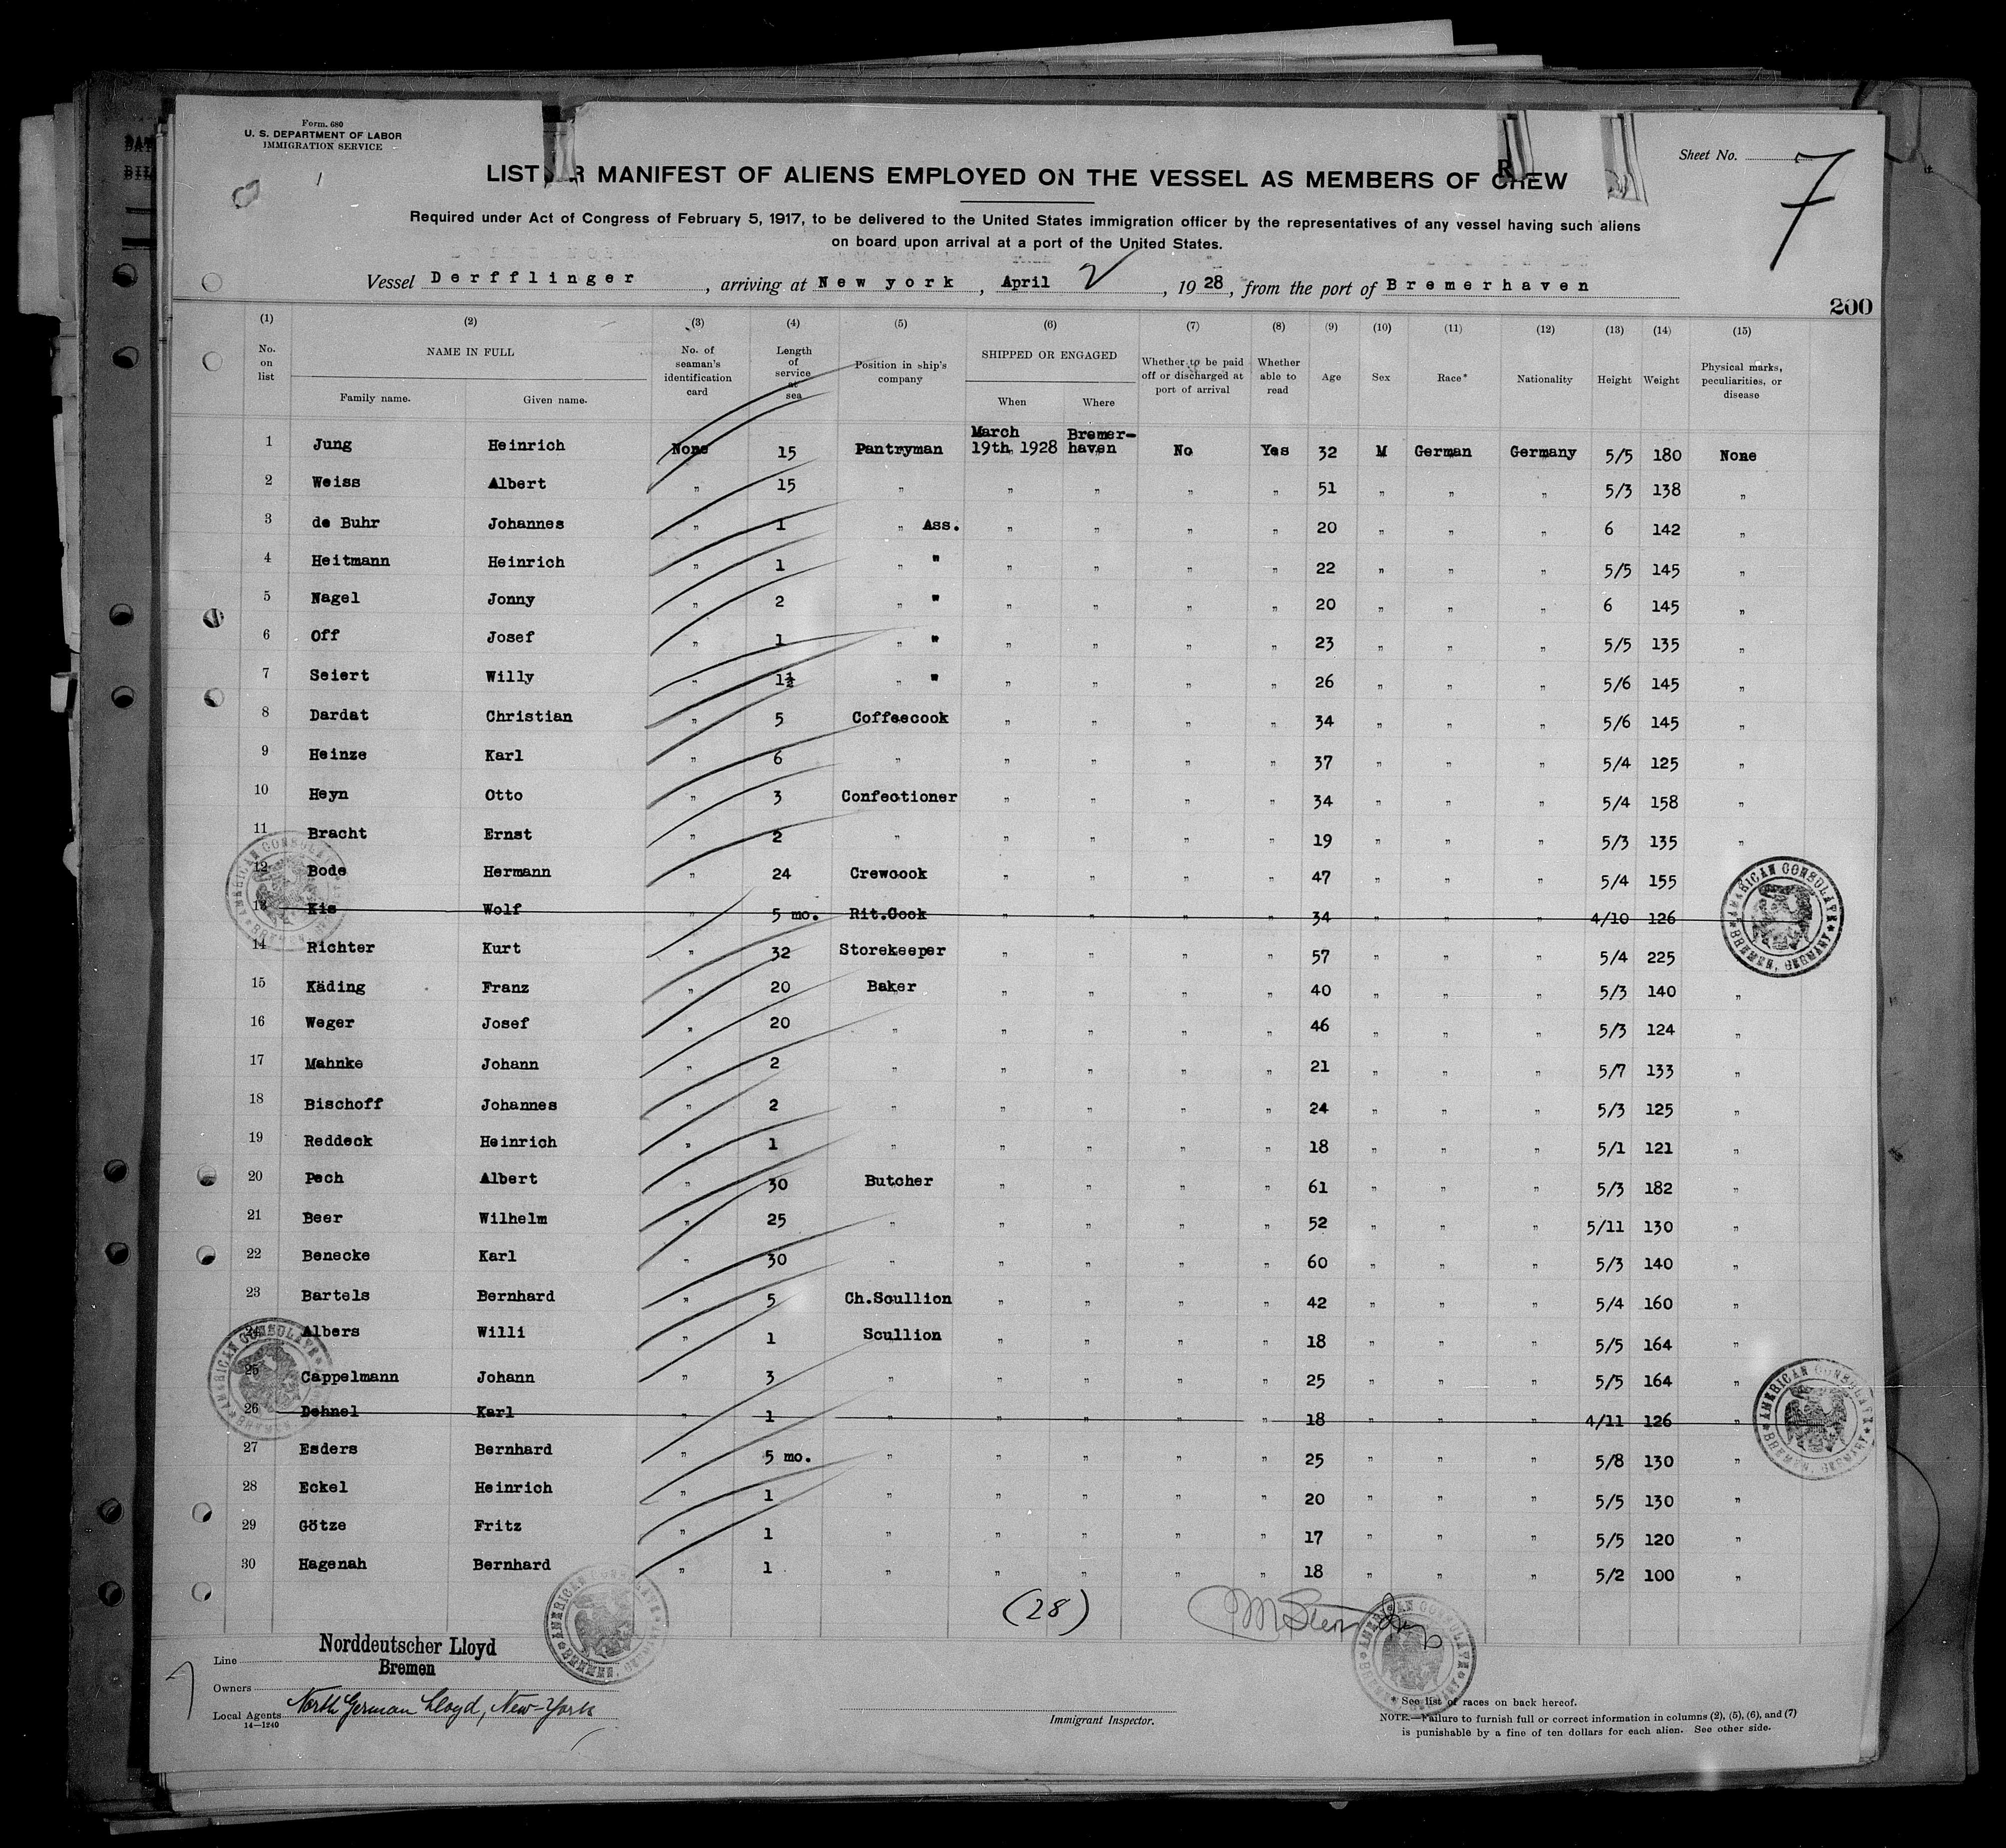 Form. 680
U. S. DEPARTMENT OF LABOR
IMMIGRATION SERVICE
Sheet No. 7
LIST R MANIFEST OF ALIENS EMPLOYED ON THE VESSEL AS MEMBERS OF CREW
Required under Act of Congress of February 5, 1917, to be delivered to the United States immigration officer by the representatives of any vessel having such aliens
on board upon arrival at a port of the United States.
Vessel Derfflinger, arriving at New york, April 2, 1928, from the port of Bremerhaven
200
(1) (2) (3) (4) (5) (6) (7) (8) (9) (10) (11) (12) (13) (14) (15)
No. on list NAME IN FULL Family name. Given name. No. of seaman's identification card Length of service at sea Position in ship's company SHIPPED OR ENGAGED When Where Whether to be paid off or discharged at port of arrival Whether able to read Age Sex Race* Nationality Height Weight Physical marks, peculiarities, or disease
1 Jung Heinrich None 15 Pantryman March 19th 1928 Bremer-haven No Yes 32 M German Germany 5/5 180 None
2 Weiss Albert " 15 " " " " " 51 " " " 5/3 138 "
3 de Buhr Johannes " 1 " Ass. " " " " 20 " " " 6 142 "
4 Heitmann Heinrich " 1 " " " " " " 22 " " " 5/5 145 "
5 Nagel Jonny " 2 " " " " " " 20 " " " 6 145 "
6 Off Josef " 1 " " " " " " 23 " " " 5/5 135 "
7 Seiert Willy " 1½ " " " " " " 26 " " " 5/6 145 "
8 Dardat Christian " 5 Coffeecook " " " " 34 " " " 5/6 145 "
9 Heinze Karl " 6 " " " " " 37 " " " 5/4 125 "
10 Heyn Otto " 3 Confectioner " " " " 34 " " " 5/4 158 "
11 Bracht Ernst " 2 " " " " " 19 " " " 5/3 135 "
12 Bode Hermann " 24 Crewcook " " " " 47 " " " 5/4 155
13 Kis Wolf " 5 mo. Rit.Cook " " " " 34 " " " 4/10 126
14 Richter Kurt " 32 Storekeeper " " " " 57 " " " 5/4 225
15 Käding Franz " 20 Baker " " " " 40 " " " 5/3 140 "
16 Weger Josef " 20 " " " " " 46 " " " 5/3 124 "
17 Mahnke Johann " 2 " " " " " 21 " " " 5/7 133 "
18 Bischoff Johannes " 2 " " " " " 24 " " " 5/3 125 "
19 Reddeck Heinrich " 1 " " " " " 18 " " " 5/1 121 "
20 Pech Albert " 30 Butcher " " " " 61 " " " 5/3 182 "
21 Beer Wilhelm " 25 " " " " " 52 " " " 5/11 130 "
22 Benecke Karl " 30 " " " " " 60 " " " 5/3 140 "
23 Bartels Bernhard " 5 Ch.Scullion " " " " 42 " " " 5/4 160 "
24 Albers Willi " 1 Scullion " " " " 18 " " " 5/5 164 "
25 Cappelmann Johann " 3 " " " " " 25 " " " 5/5 164 "
26 Dehnel Karl " 1 " " " " " 18 " " " 4/11 126 "
27 Esders Bernhard " 5 mo. " " " " " 25 " " " 5/8 130 "
28 Eckel Heinrich " 1 " " " " " 20 " " " 5/5 130 "
29 Götze Fritz " 1 " " " " " 17 " " " 5/5 120 "
30 Hagenah Bernhard " 1 " " " " " 18 " " " 5/2 100 "
AMERICAN CONSULATE BREMEN, GERMANY
AMERICAN CONSULATE BREMEN, GERMANY
AMERICAN CONSULATE BREMEN, GERMANY
AMERICAN CONSULATE BREMEN, GERMANY
AMERICAN CONSULATE BREMEN, GERMANY
AMERICAN CONSULATE BREMEN, GERMANY
(28)
Line Norddeutscher Lloyd
Bremen
Owners
Local Agents North German Lloyd, New-York
14—1240
Immigrant Inspector.
* See list of races on back hereof.
NOTE.—Failure to furnish full or correct information in columns (2), (5), (6), and (7)
is punishable by a fine of ten dollars for each alien. See other side.